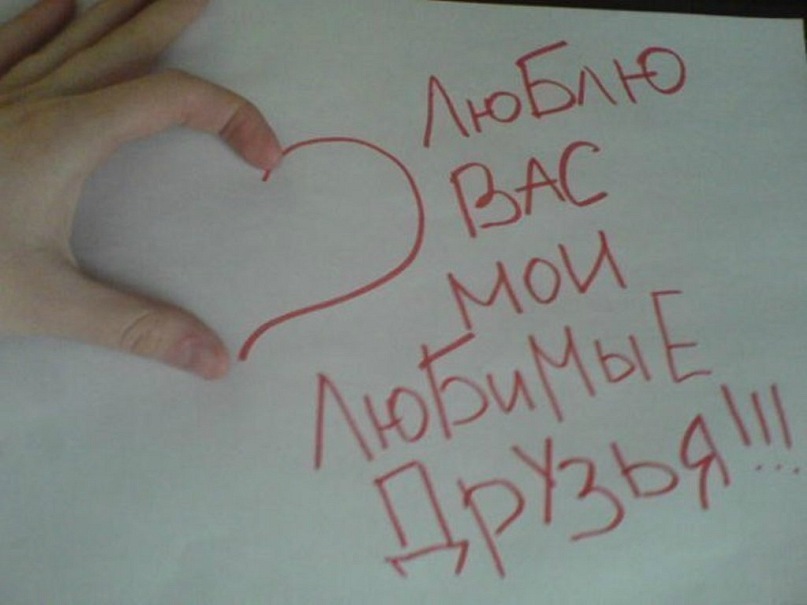 Люблю
ВАС
мои
ЛюБиМыЕ
Друзья!!!